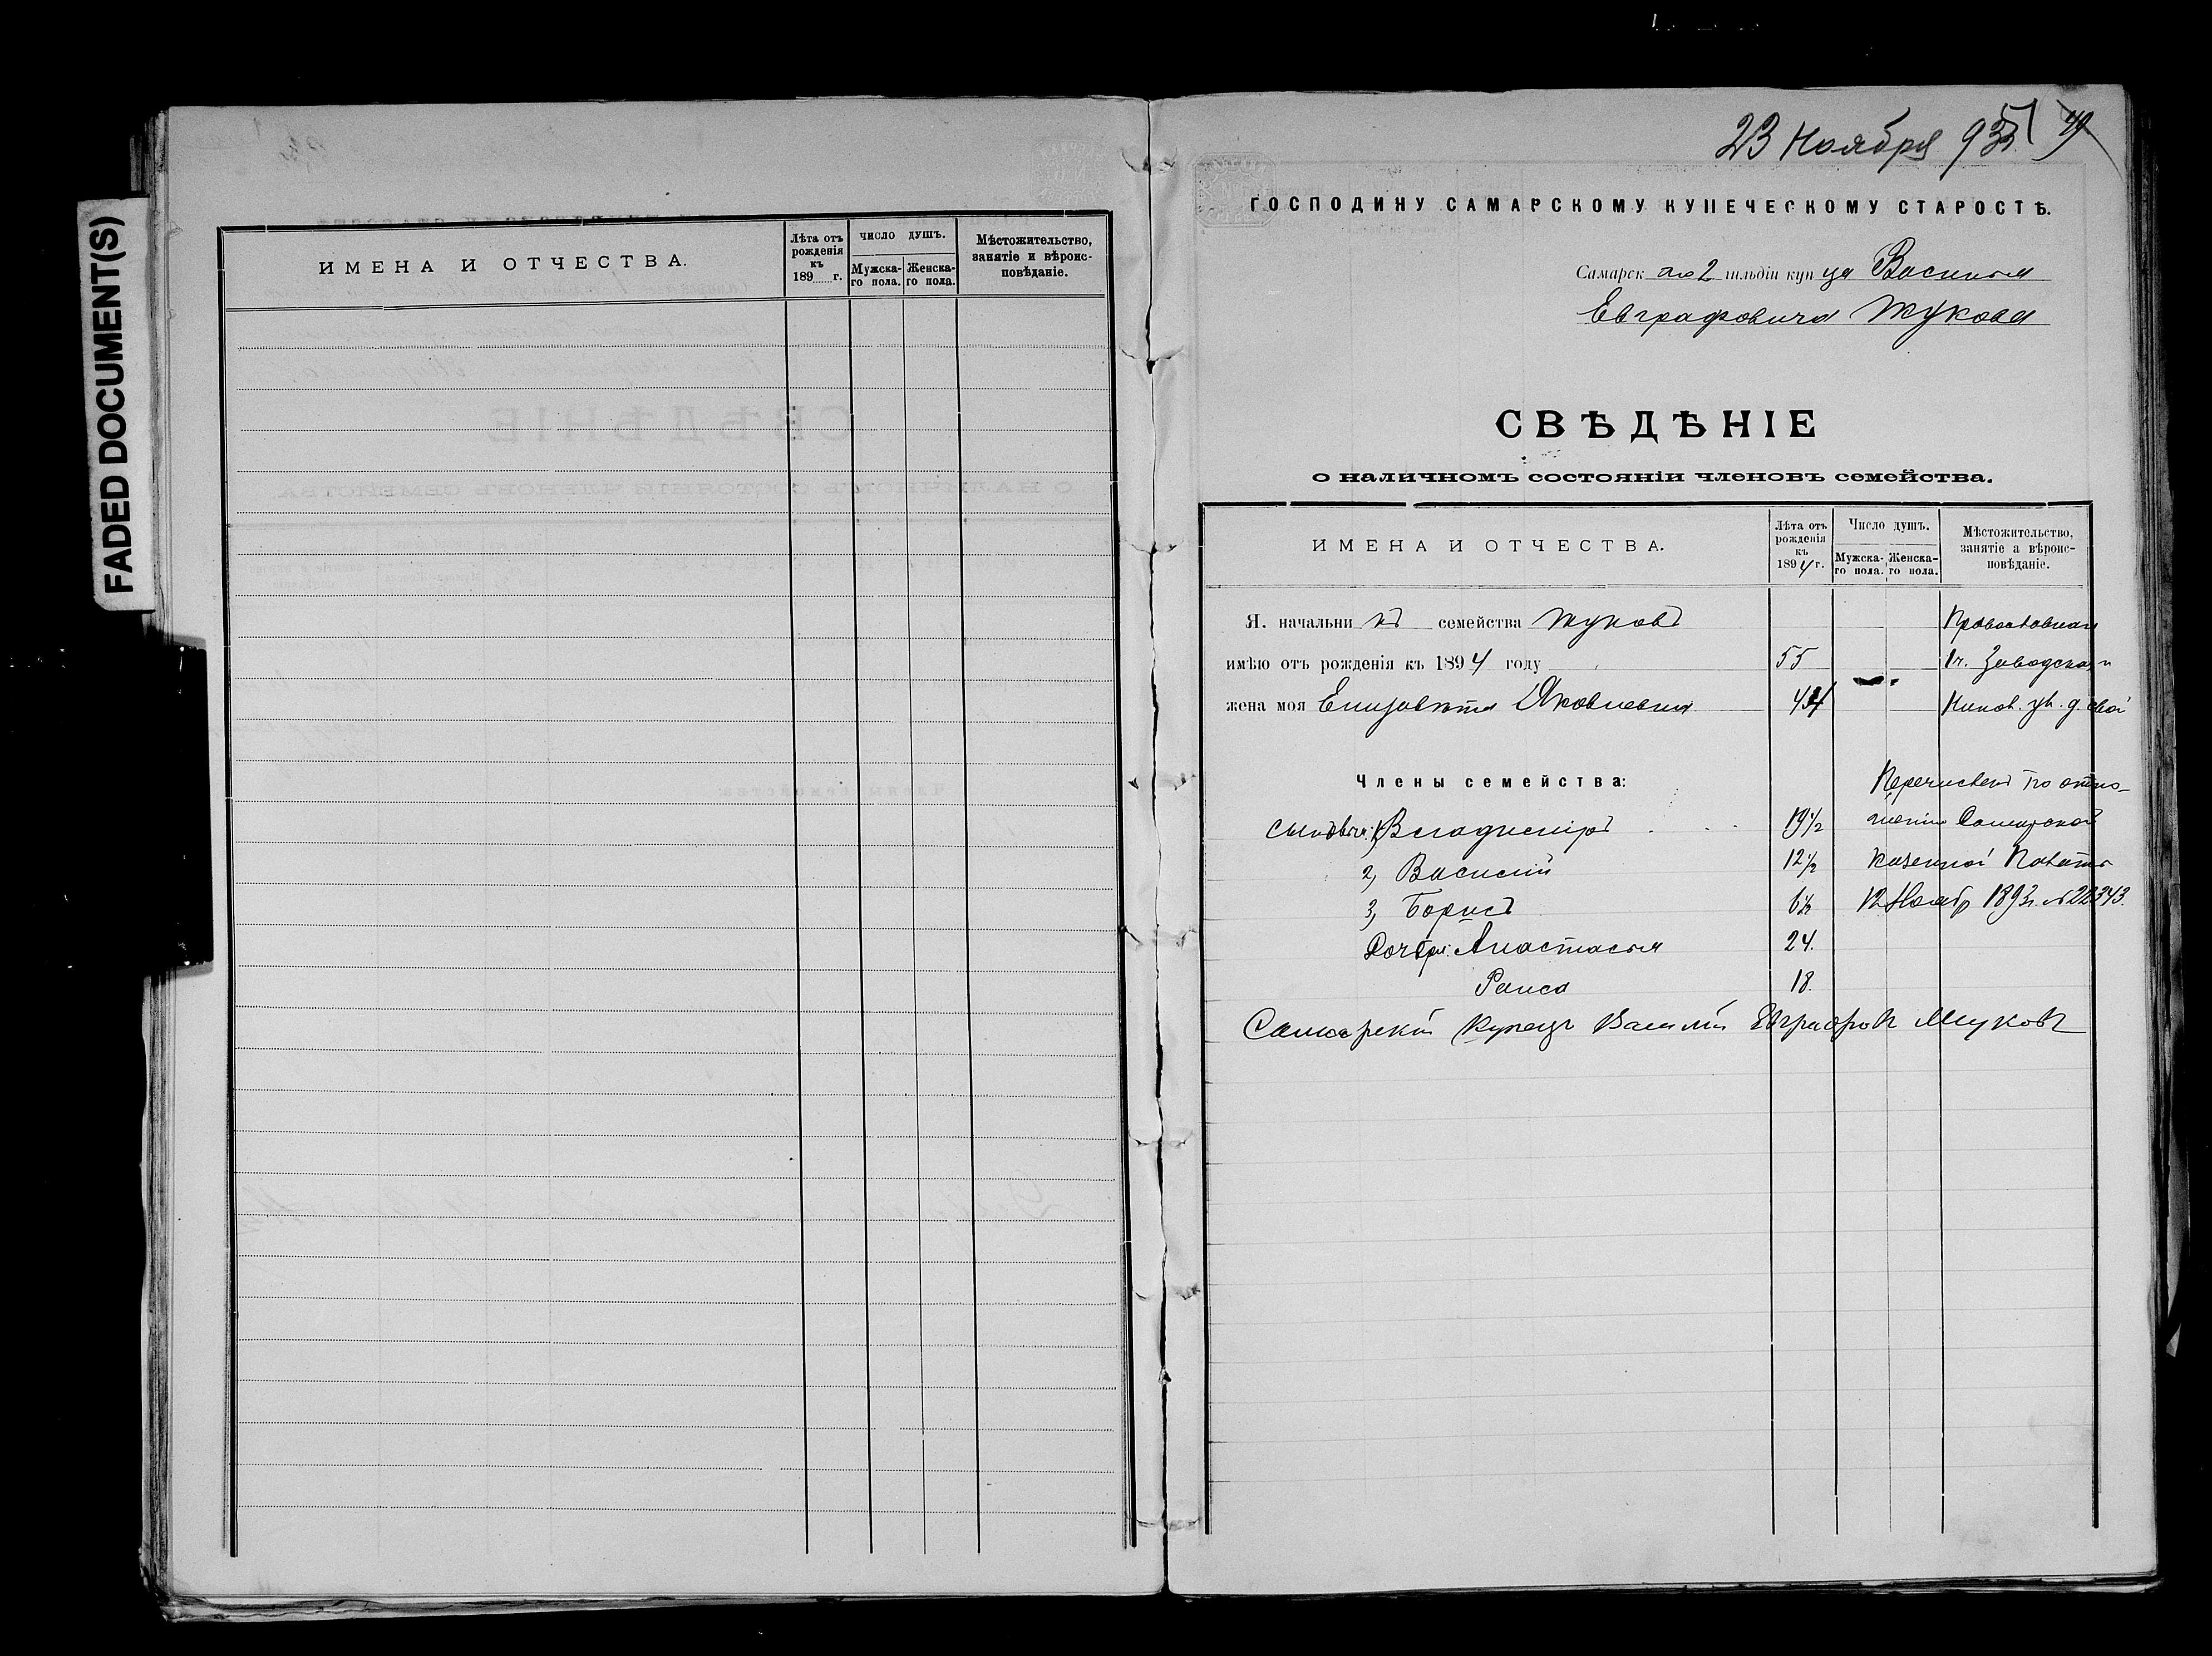 FADED DOCUMENT(S)
ИМЕНА И ОТЧЕСТВА.
Лѣта отъ рожденія къ 189 г.
ЧИСЛО ДУШЪ.
Мужска-го пола.
Женска-го пола.
Мѣстожительство, занятіе и вѣроис-повѣданіе.
23 Ноября 93 г. 51 49
ГОСПОДИНУ САМАРСКОМУ КУПЕЧЕСКОМУ СТАРОСТѢ.
Самарскаго 2 гильдіи купца Василья
Евграфовича Жукова
СВѢДѢНІЕ
о наличномъ состояніи членовъ семейства.
ИМЕНА И ОТЧЕСТВА.
Лѣта отъ рожденія къ 1894 г.
Число душъ.
Мужска-го пола.
Женска-го пола.
Мѣстожительство, занятіе а вѣроис-повѣданіе.
Я. начальникъ семейства Жуковъ Православная
имѣю отъ рожденія къ 1894 году 55 1 ч. Заводская
жена моя Елизавѣта Яковлевна 44 д. свой
Члены семейства: Перечисленъ по отно-
сыновья: 1, Владиміръ 19 1/2 шенію Самарской
2, Василій 12 1/2 Казенной Палаты
3, Борисъ 6 1/2 12 Ноябр 1893 г. № 22343.
Дочери: Анастасья 24.
Раиса 18.
Самарскій Купецъ Василій Евграфовъ Жуковъ